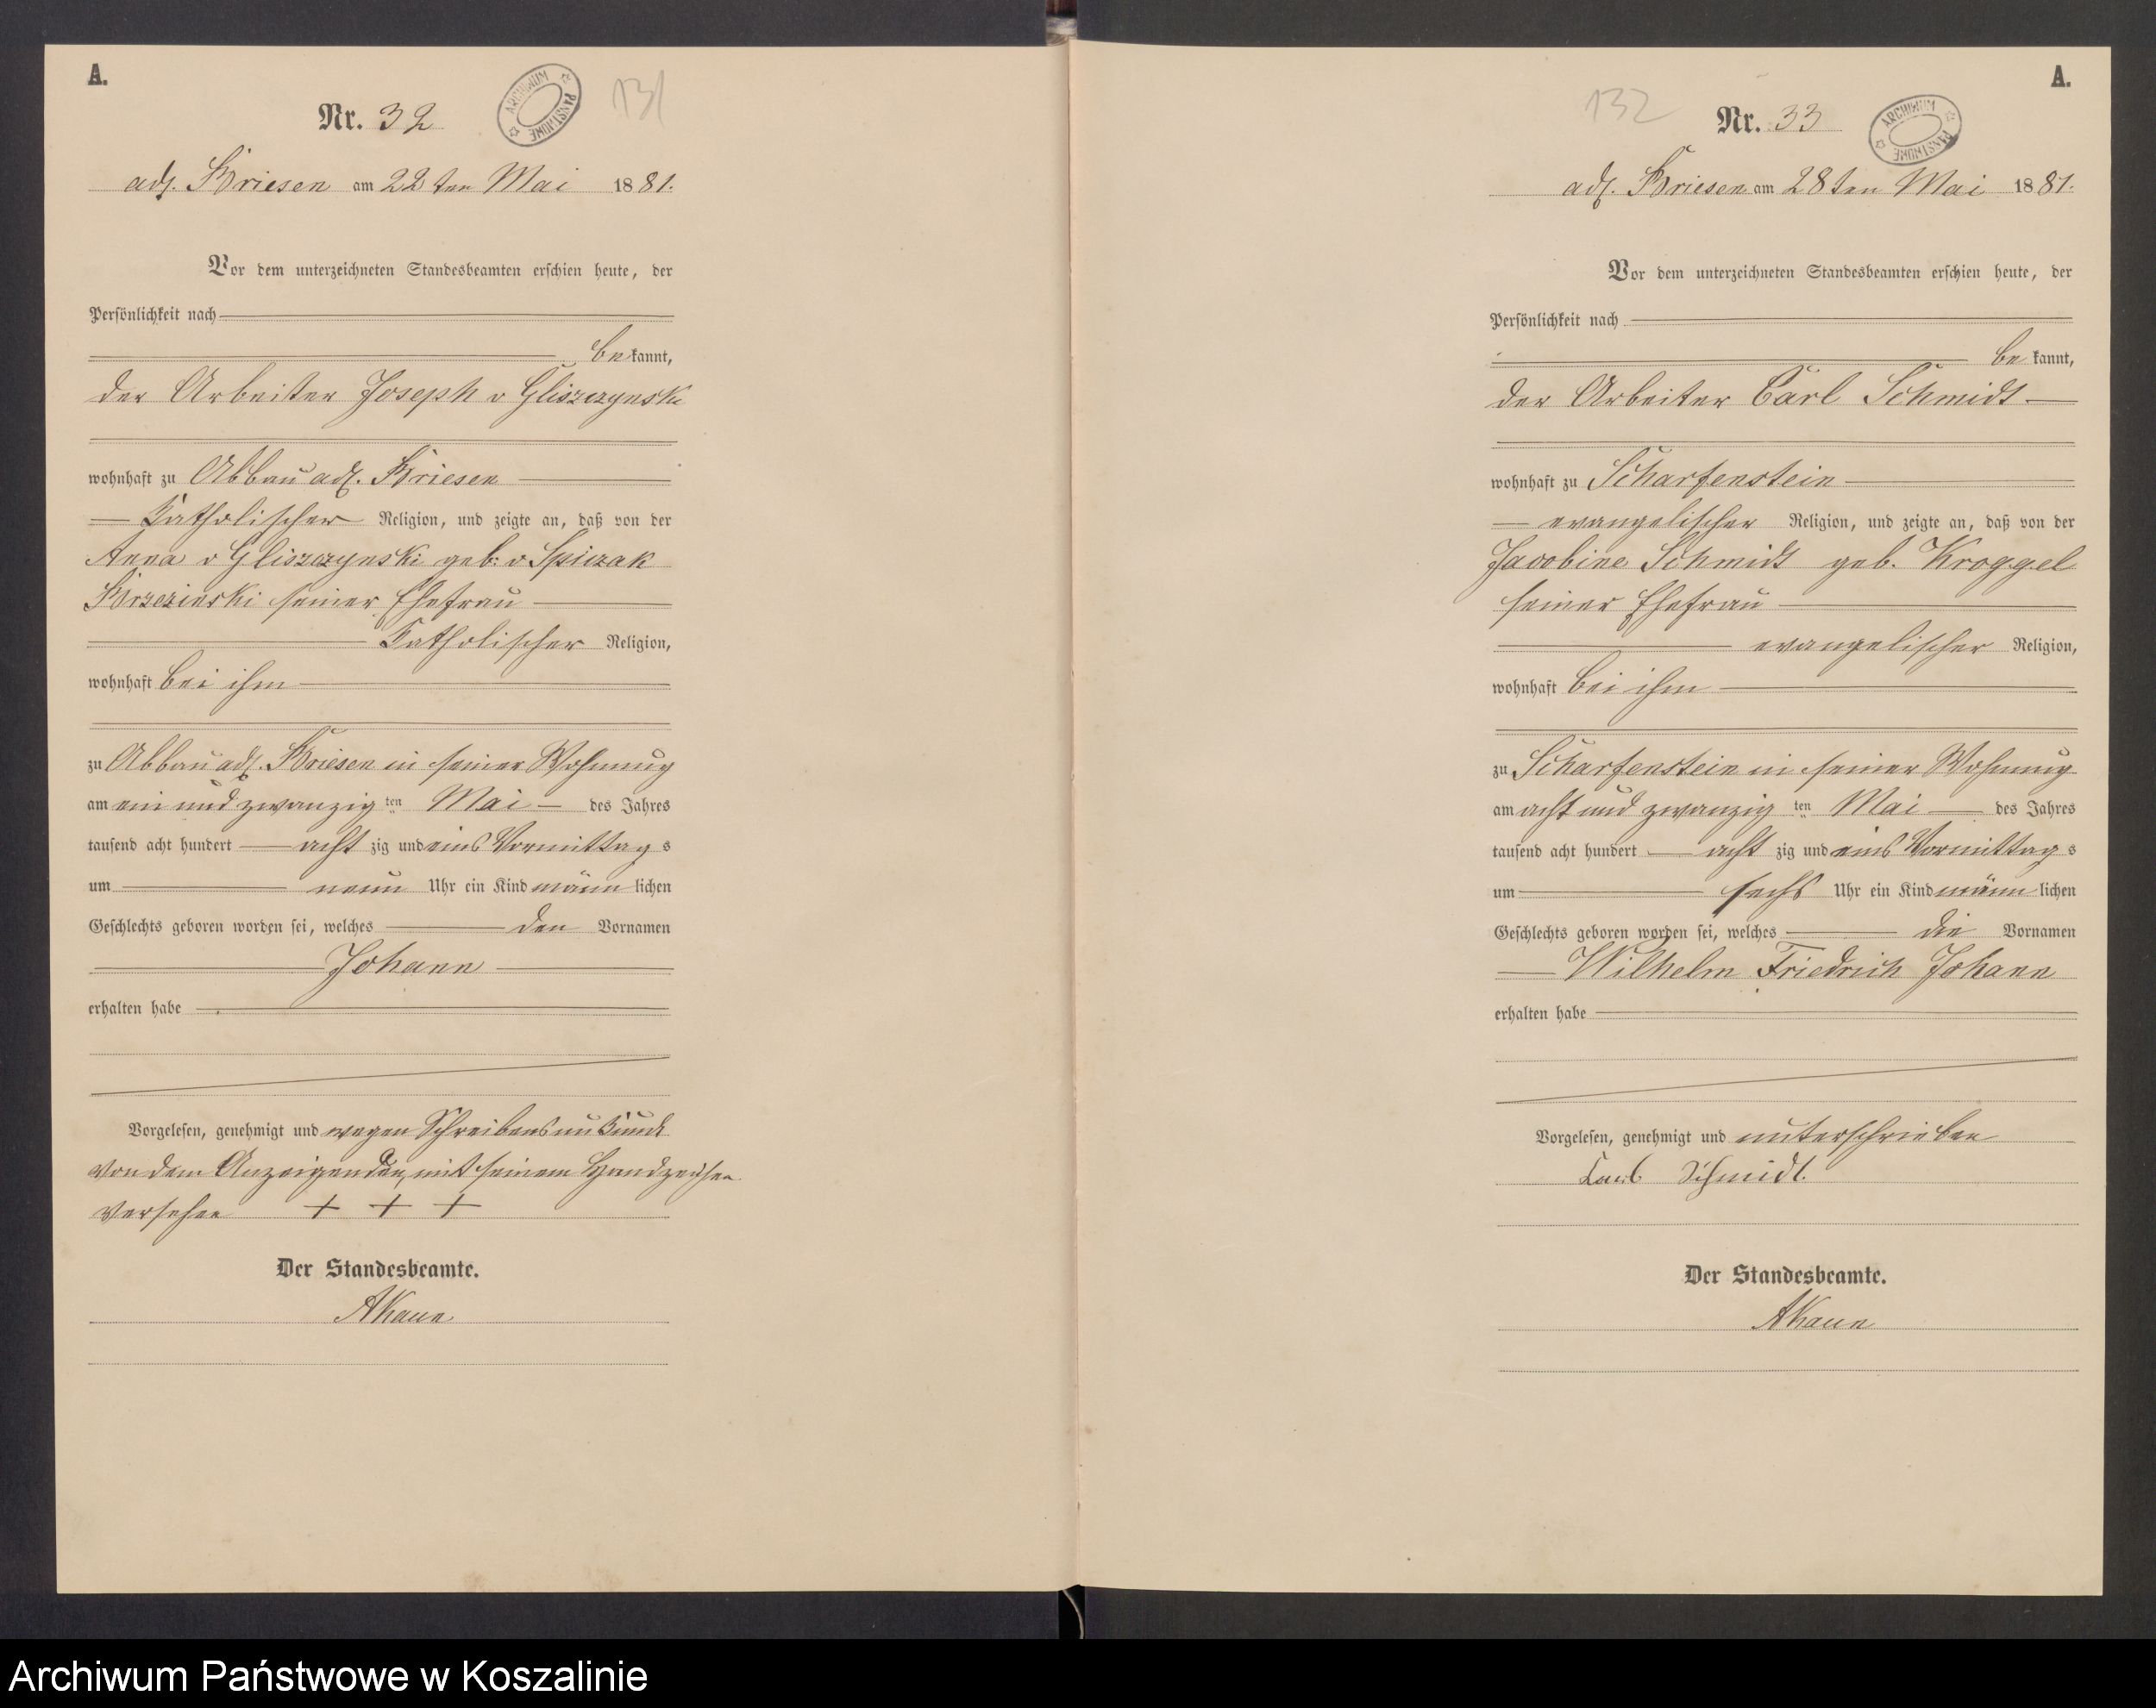 A.
Nr. 32
131
ARCHIWUM PAŃSTWOWE
adl. Briesen am 22ten Mai 1881.
Vor dem unterzeichneten Standesbeamten erschien heute, der
Persönlichkeit nach
bekannt,
der Arbeiter Joseph v Gliszczynski
wohnhaft zu Abbau adl. Briesen
Katholischer Religion, und zeigte an, daß von der
Anna v Gliszczynski geb: v Spiczak
Brzezinski seiner Ehefrau
Katholischer Religion,
wohnhaft bei ihm
zu Abbau adl. Briesen in seiner Wohnung
am ein und zwanzig ten Mai des Jahres
tausend acht hundert acht zig und eins Vormittags
um neun Uhr ein Kind männlichen
Geschlechts geboren worden sei, welches den Vornamen
Johann
erhalten habe
Vorgelesen, genehmigt und wegen Schreibensunkunde
von dem Anzeigenden mit seinem Handzeichen
versehen + + +
Der Standesbeamte.
A.
132
Nr. 33
ARCHIWUM PAŃSTWOWE
adl. Briesen am 28ten Mai 1881.
Vor dem unterzeichneten Standesbeamten erschien heute, der
Persönlichkeit nach
bekannt,
der Arbeiter Carl Schmidt
wohnhaft zu Scharfenstein
evangelischer Religion, und zeigte an, daß von der
Jacobine Schmidt geb. Kroggel
seiner Ehefrau
evangelischer Religion,
wohnhaft bei ihm
zu Scharfenstein in seiner Wohnung
am acht und zwanzig ten Mai des Jahres
tausend acht hundert acht zig und eins Vormittags
um sechs Uhr ein Kind männlichen
Geschlechts geboren worden sei, welches die Vornamen
Wilhelm Friedrich Johann
erhalten habe
Vorgelesen, genehmigt und unterschrieben
Carl Schmidt.
Der Standesbeamte.
Archiwum Państwowe w Koszalinie